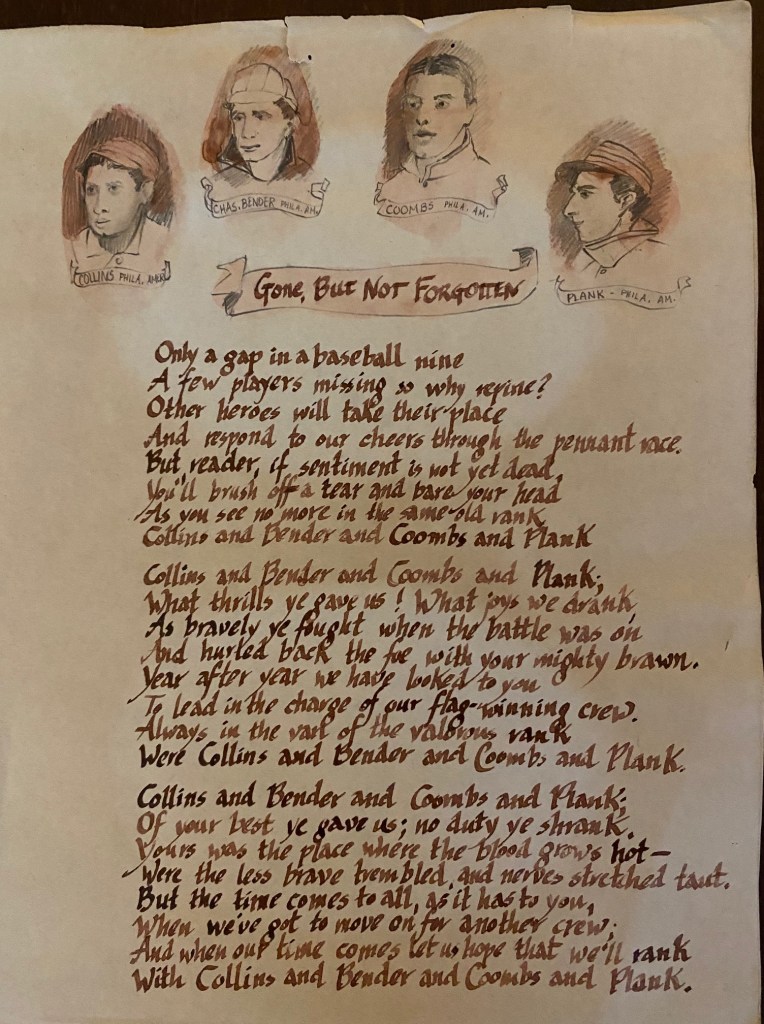 COLLINS PHILA. AMER
CHAS. BENDER PHILA. AM.
COOMBS PHILA. AM.
PLANK - PHILA. AM.
GONE, BUT NOT FORGOTTEN
Only a gap in a baseball nine
A few players missing so why repine?
Other heroes will take their place
And respond to our cheers through the pennant race.
But, reader, if sentiment is not yet dead,
You'll brush off a tear and bare your head
As you see no more in the same old rank
Collins and Bender and Coombs and Plank
Collins and Bender and Coombs and Plank;
What thrills ye gave us! What joys we drank,
As bravely ye fought when the battle was on
And hurled back the foe with your mighty brawn.
Year after year we have looked to you
To lead in the charge of our flag-winning crew.
Always in the van of the valorous rank
Were Collins and Bender and Coombs and Plank.
Collins and Bender and Coombs and Plank;
Of your best ye gave us; no duty ye shrank.
Yours was the place where the blood grows hot—
Were the less brave trembled, and nerves stretched taut.
But the time comes to all, as it has to you,
When we've got to move on for another crew;
And when our time comes let us hope that we'll rank
With Collins and Bender and Coombs and Plank.